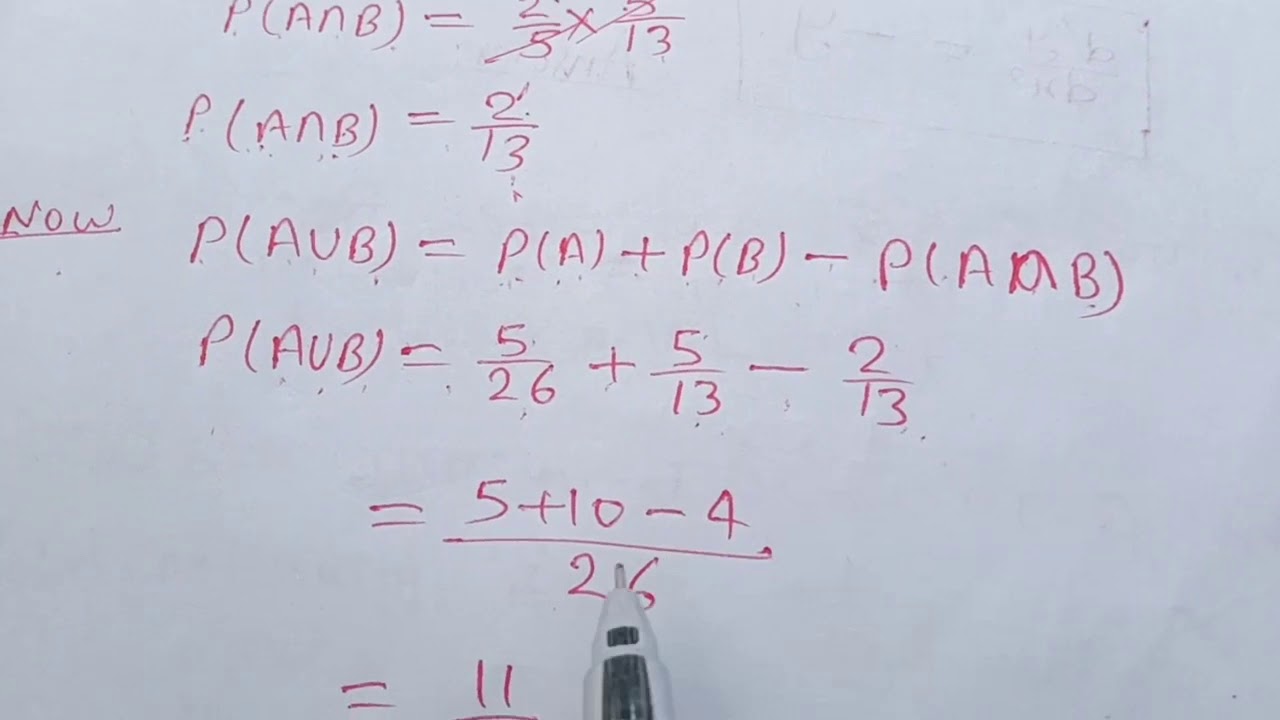 P(A∩B) = 2/5 × 5/13
P(A∩B) = 2/13
NOW P(A∪B) = P(A) + P(B) − P(A∩B)
P(A∪B) = 5/26 + 5/13 − 2/13
= 5+10−4/26
= 11